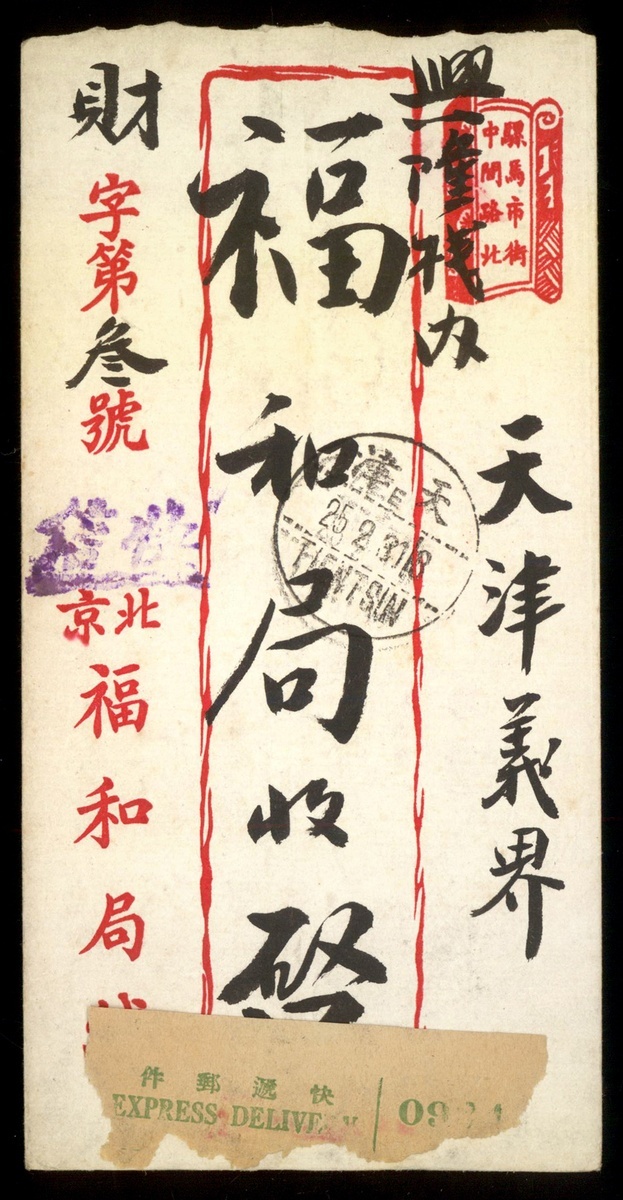 騾馬市街
中間路北
天津義界
興隆棧內
福和局收啓
財字第叁號
北京
福和局
天津
25 2 37
TIENTSIN
快遞郵件
EXPRESS DELIVERY